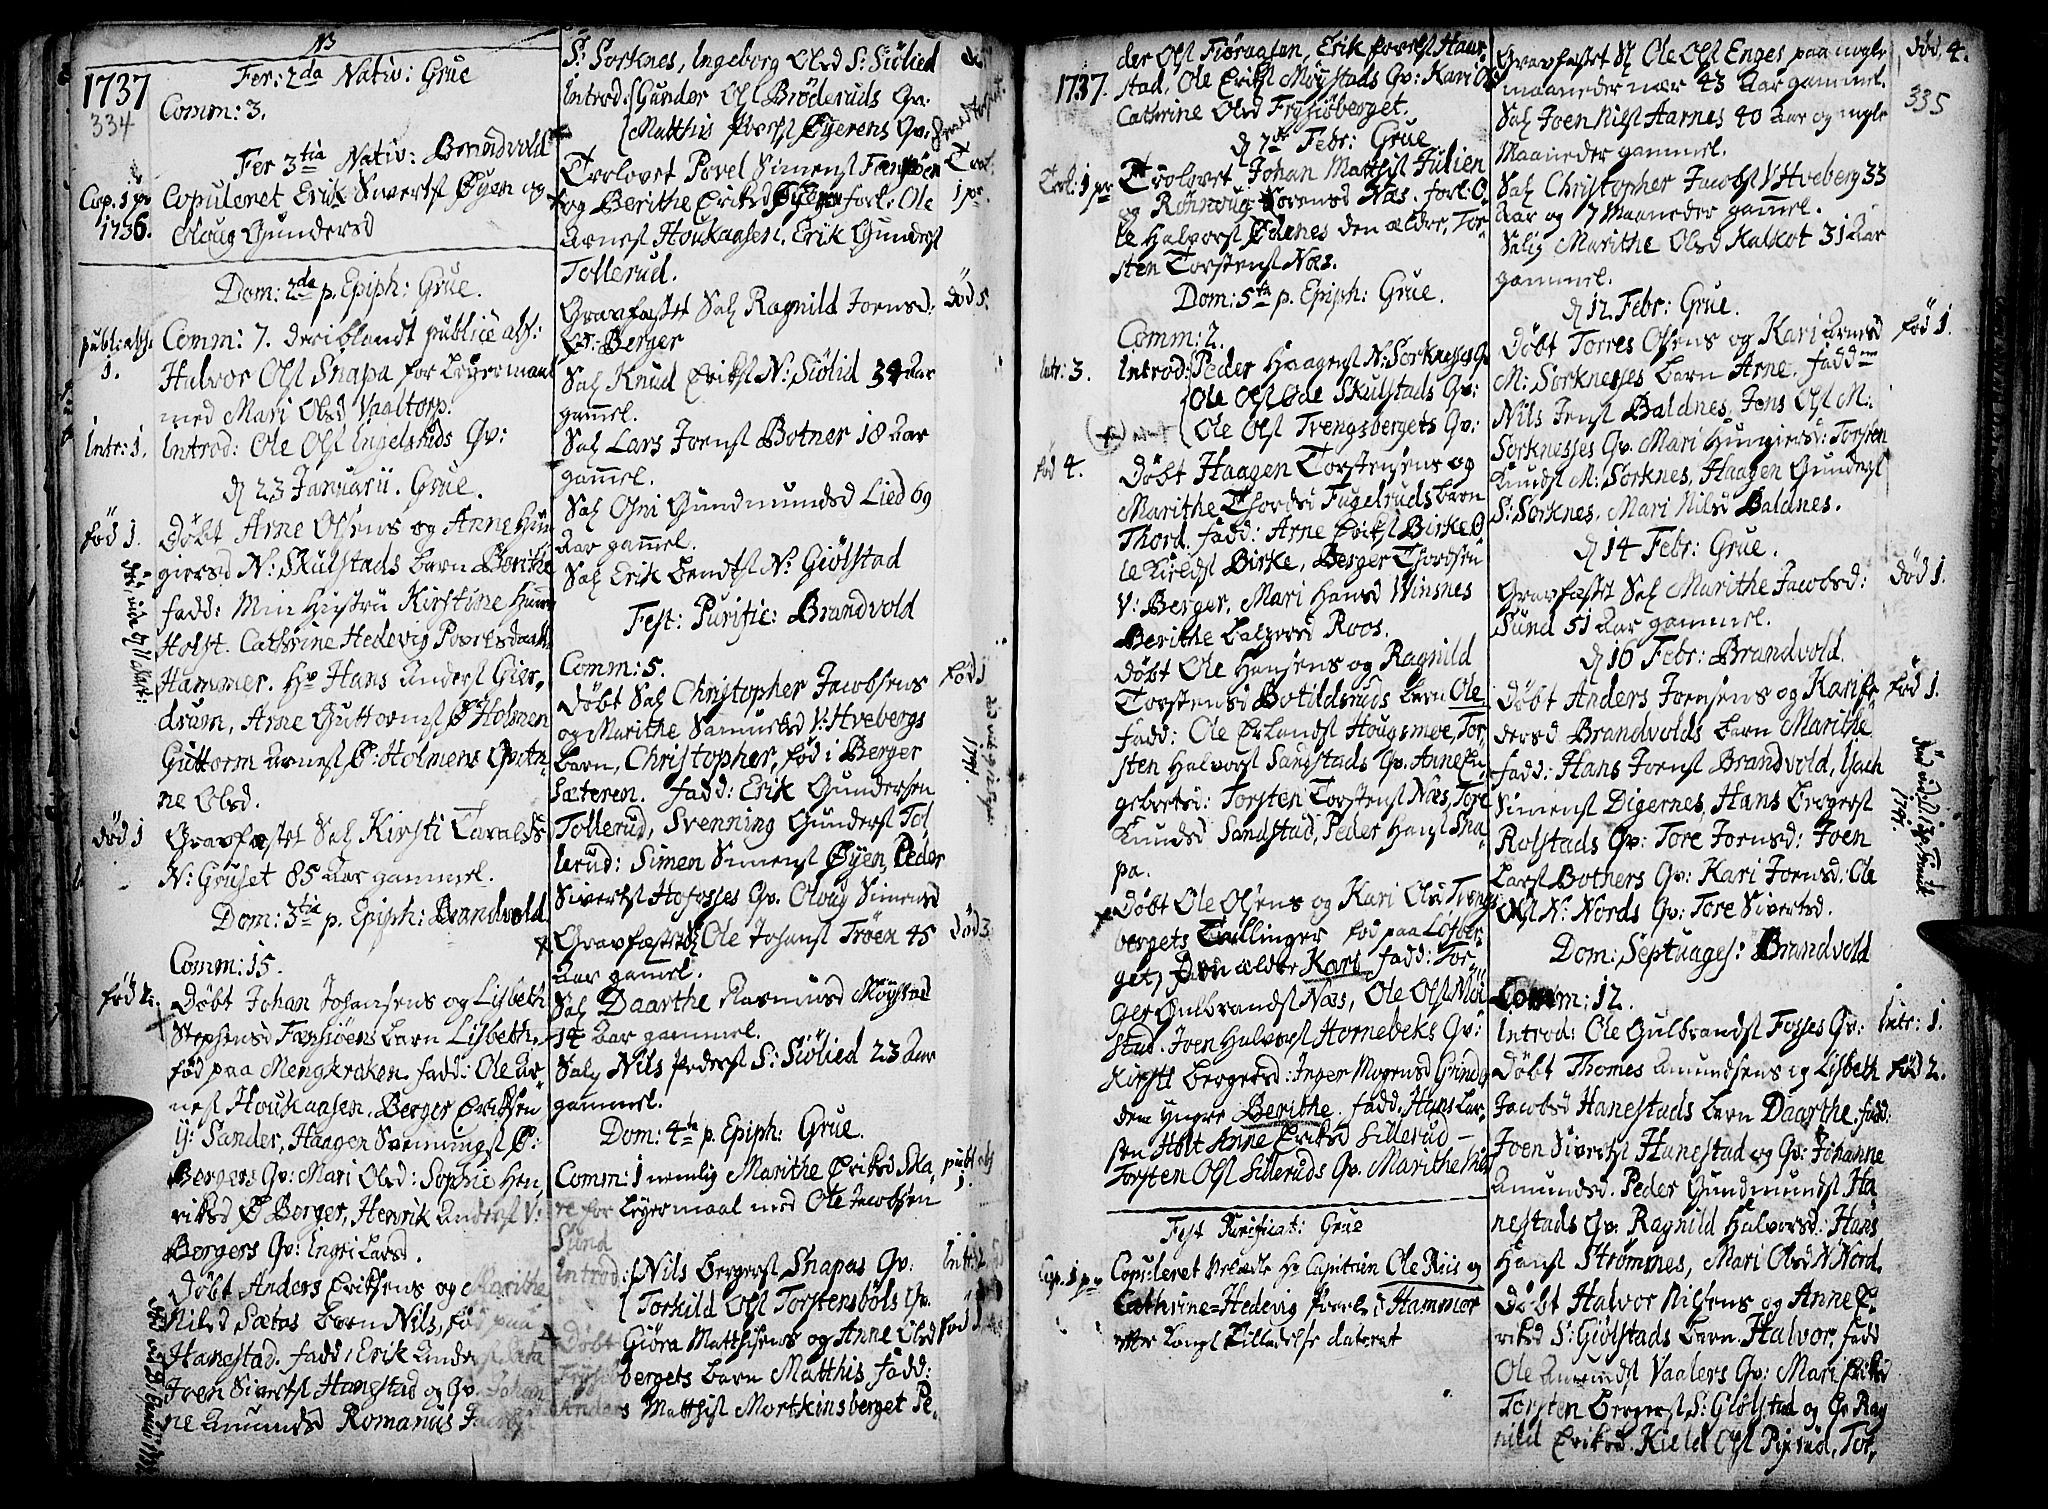 1737
334
Fer: 2da Nativ: Grue
Comm: 3.
Fer 3tia Nativ: Brandvold
Cop. 1 pr
1736.
Copuleret Erik Sivertsf Øyen og
Oloug Gundersd
Dom: 2da p. Epiph: Grue.
publ: abs:
1.
Comm: 7. deriblandt publice abs:
Halvor Olsf Snapa for Legermaal
med Mari Olsd Vaaltorp.
Intr: 1.
Introd: Ole Olsf Ingelsruds Qv:
d 23 Januarii. Grue.
fød 1.
Døbt Arne Olsens og Anne Hun
giersd N: Skulstads barn Berithe
fadd: Min Hustru Kirstine
Holst. Cathrine Hedevig Povelsdaatt
Hammer. Hr Hans Andersf Gier,
drum, Arne Guttormsf Ø Holmen
Guttorm Arnesf Ø: Holmens Qv: An-
ne Olsd.
død 1
Gravfæstet Sal Kirsti Taraldsd
N: Gruset 85 Aar gammel.
Dom: 3tia p. Epiph: Brandvold
Comm: 15.
fød 2.
Døbt Johan Johansens og Lisbeth
Stephensd Fansøens barn Lisbeth,
fød paa Mengkroken. fadd: Ole Ar-
nesf Houkaasen. Berger Eriksen
y: Sander, Haagen Svenningsf Ø:
Bergers Qv: Mari Olsd: Sophie Hen,
riksd Ø Berger, Henrik Andersf V:
Bergers Qv: Ingri Larsd.
Døbt Anders Eriksens og Marithe
Nilsd Sætas barn Nils, fød paa
Hanestad. fadd: Erik Andersf Sæta
Joen Sivertsf Hanestad og Qv. Johan
ne Amundsd Romanus Jacobsf
S: Sorknes, Ingeborg Olsd S: Siölied
Introd: Gunder Olsf Bröderuds Qv.
Matthis Povelsf Øyerens Qv:
Trolovet Povel Simensf Fansøen
og Berithe Eriksd Øyen forl: Ole
Arnesf Houkaasen. Erik Gundersf
Tollerud.
Trol.
1 pr.
Gravfæstet Sal Ragnild Joensd:
død 5.
Berger
Sal Knud Eriksf N: Siölid 34 Aar
gammel.
Sal Lars Joensf Botner 18 Aar
gammel.
Sal Gni Gundmundsd Lied 69
Aar gammel.
Sal Erik Bendtsf N: Giölstad
Fest: Purific: Brandvold
Comm: 5.
fød 1
Døbt Sal Christopher Jacobsens
og Marithe Samuelsd V: Hvebergs
barn, Christopher, fød i Berger
Sæteren. fadd: Erik Gundersen
Tollerud, Svenning Gundersf Tol
lerud: Simen Simensf Øyen, Peder
Sivertsf Hofosses Qv. Oloug Simensd
død 3
Gravfæstet Sal Ole Johansf Tröen 45
Aar gammel.
Sal Daarthe Rasmusd Möystad
14 Aar gammel.
Sal Nils Pedersf S: Siölied 23 Aar
gammel.
Dom: 4ta p. Epiph: Grue.
publ abs
1.
Comm: 1 nemlig Marithe Eriksd Ska
re for Legermaal med Ole Jacobsen
Sund
Intr: 2.
Introd: Nils Bergersf Snapas Qv:
Torkild Olsf Torstensböls Qv.
fød 1
Döbt Giöra Matthisens og Anne Olsd
Frysiöbergets barn Matthis. fadd:
Anders Matthisf Mortkinsberget Pe-
1737.
der Olsf Fiöraasen, Erik Povelsf Haar
stad, Ole Eriksf Möystads Qv: Kari Ols
Cathrine Olsd Frysiöberget.
d 7de Febr: Grue
Trl: 1 pr
Trolovet Johan Matthisf Julien
og Rönnoug Sorensd Næs. forl: O
le Halvorsf Ødenes den ældre, Tor-
sten Torstensf Næs.
Dom: 5ta p. Epiph: Grue.
Comm: 2.
Intr: 3.
Introd: Peder Haagensf N: Sorknesses Qv
Ole Olsf Øde Skulstads Qv:
Ole Olsf Tvengsbergets Qv:
fød 4.
Døbt Haagen Torstensens og
Marithe Thordsd Fugelruds barn
Thord. fadd: Arne Eriksf Birke O
le Kieldsf Birke, Berger Thordsen
V: Berger, Mari Hansd Winsnes
Berithe Halvorsd Roos.
Døbt Ole Hansens og Ragnild
Torstensd Botildsruds barn Ole
fadd: Ole Erlandsf Hougsmoe, Tor-
sten Halvorsf Sandstads Qv. Anne En-
gebretsd: Torsten Torstensf Næs, Tore
Knudsd Sandstad, Peder Hansf Sna-
pa.
Døbt Ole Olsens og Kari Olsd Tvengs
bergets Tvillinger fød paa Löfber,
get, den ældre Kari fadd: Tor
ger Gulbrandsf Næs, Ole Olsf Möi
stad. Joen Halvorsf Hornebeks Qv:
Kirsti Bergersd: Inger Mogensd Grinder
den yngre Berithe. fadd. Hans Lar-
sen Holt Anne Eriksd Sillerud –
Torsten Olsf Silleruds Qv. Marithe
Fest Purificat: Grue
Cop. 1 pr
Copuleret Hr Capitain Ole Riis og
Cathrine=Hedevig Povelsd Hammer
efter Kongl Tilladelse dateret
Gravfæstet Sl Ole Olsf Enges paa nogle
maaneder nær 43 Aar gammel.
død 4.
335
Sal Joen Nilsf Aarnes 40 Aar og nogle
Maaneder gammel.
Sal Christopher Jacobsf V Hveberg 33
Aar og 7 Maaneder gammel.
Salig Marithe Olsd Kalkot 31 Aar
gammel.
d 12 Febr: Grue.
fød 1.
Døbt Torres Olsens og Kari Arnesd
M: Sorknesses barn Arne. fadd
Nils Jensf Baldnes, Jens Olsf M:
Sorknesses Qv. Mari Hungiersd: Torsten
Knudsf M: Sorknes, Haagen Gundersf
S: Sorknes, Mari Nilsd Baldnes.
d 14 Febr: Grue.
død 1.
Gravfæstet Sal Marithe Jacobsd:
Sund 51 Aar gammel.
d 16 Febr: Brandvold.
fød 1.
Døbt Anders Joensens og Kari Pe
dersd Brandvolds barn Marithe
fadd: Hans Joensf Brandvold, Isach
Simensf Digernes, Hans Bergersf
Rolstads Qv: Tore Joensd: Joen
Larsf Bothers Qv: Kari Joensd. Ole
Olsf N: Nords Qv: Tore Sivertsd.
Dom: Septuages: Brandvold
Comm: 12.
Intr: 1.
Introd: Ole Gulbrandsf Fosses Qv:
fød 2.
Døbt Thomes Amundsens og Lisbeth
Jacobsd Hanestads barn Daarthe. fadd:
Joen Sivertsf Hanestad og Qv: Johanne
Amundsd. Peder Gundmundsf Ha-
nestads Qv. Ragnild Halvorsd: Hans
Hansf Strömnes, Mari Olsd N Nord.
Døbt Halvor Nilsens og Anne E-
riksd S: Giölstads barn Halvor, fadd
Ole Amundsf Vaalers Qv: Mari
Torsten Bergersf S: Giölstad og Qv Rag
nild Eriksd. Kield Olsf Pixrud, Tor-